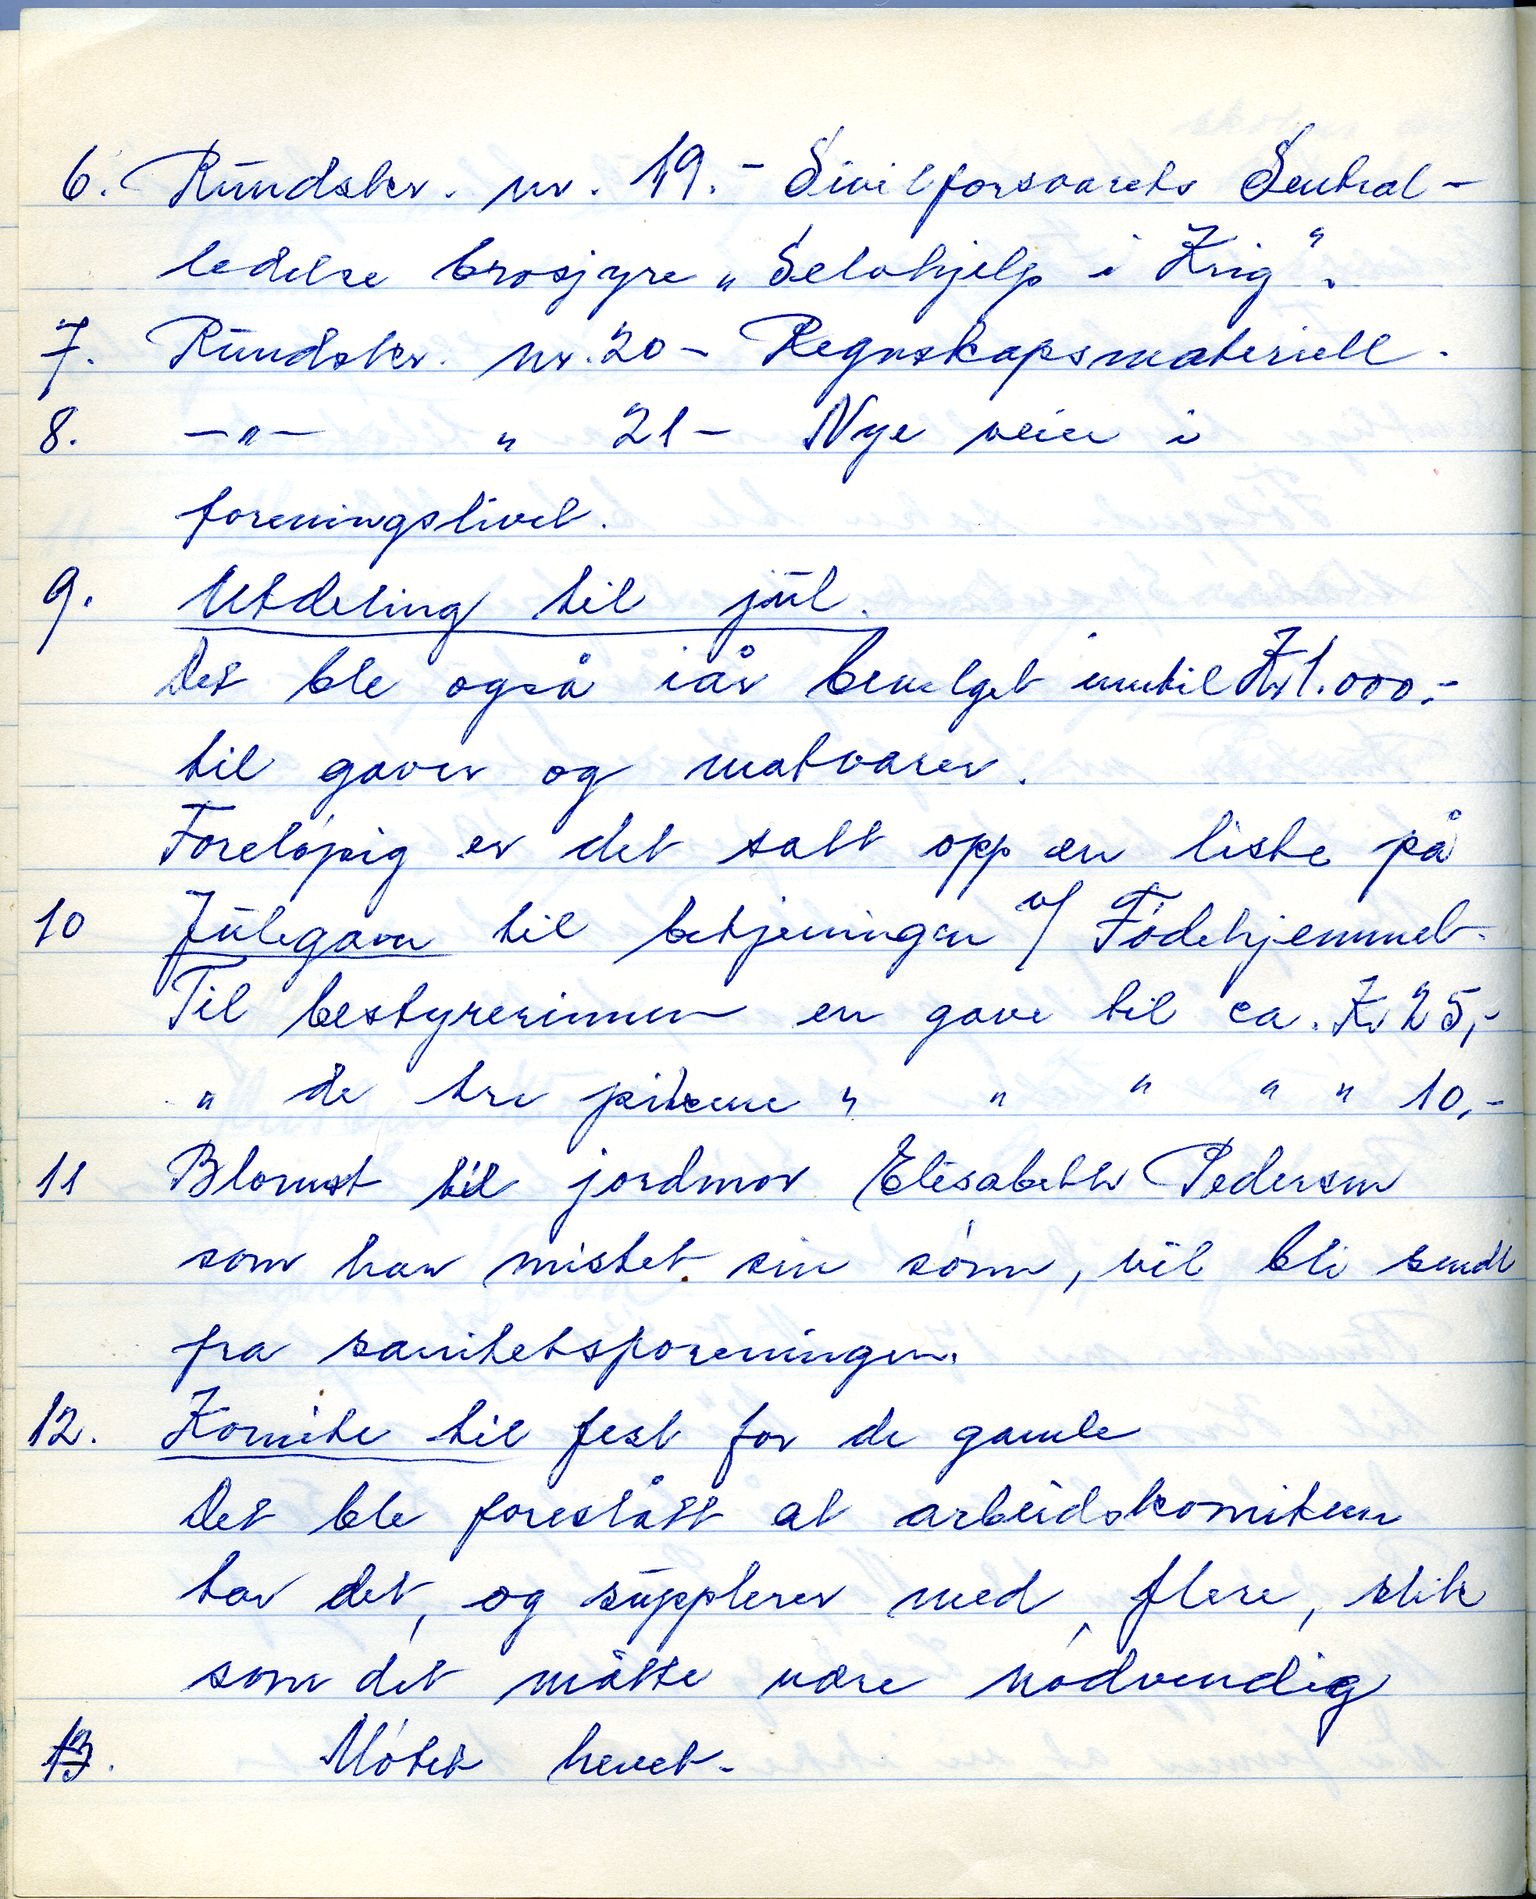 6. Rundskr. nr. 19.- Sivilforsvarets Sentral-
ledelse brosjyre „Selvhjelp i Krig".
7. Rundskr. nr. 20 - Regnskapsmateriell.
8. -"- " 21 - Nye veier i
foreningslivet.
9. Utdeling til jul.
Det ble også iår bevilget inntil Kr 1.000,-
til gaver og matvarer.
Foreløpig er det satt opp en liste på
10 Julegaver til betjeningen v/ Fødehjemmet.
Til bestyrerinnen en gave til ca. Kr 25,-
" de tre pikene " " " " " 10,-
11 Blomst til jordmor Elisabeth Pedersen
som har mistet sin sønn, vil bli sendt
fra sanitetsforeningen.
12. Komite til fest for de gamle
Det ble foreslått at arbeidskomiteen
tar det, og supplerer med flere, slik
som det måtte være nødvendig
13. Møtet hevet.